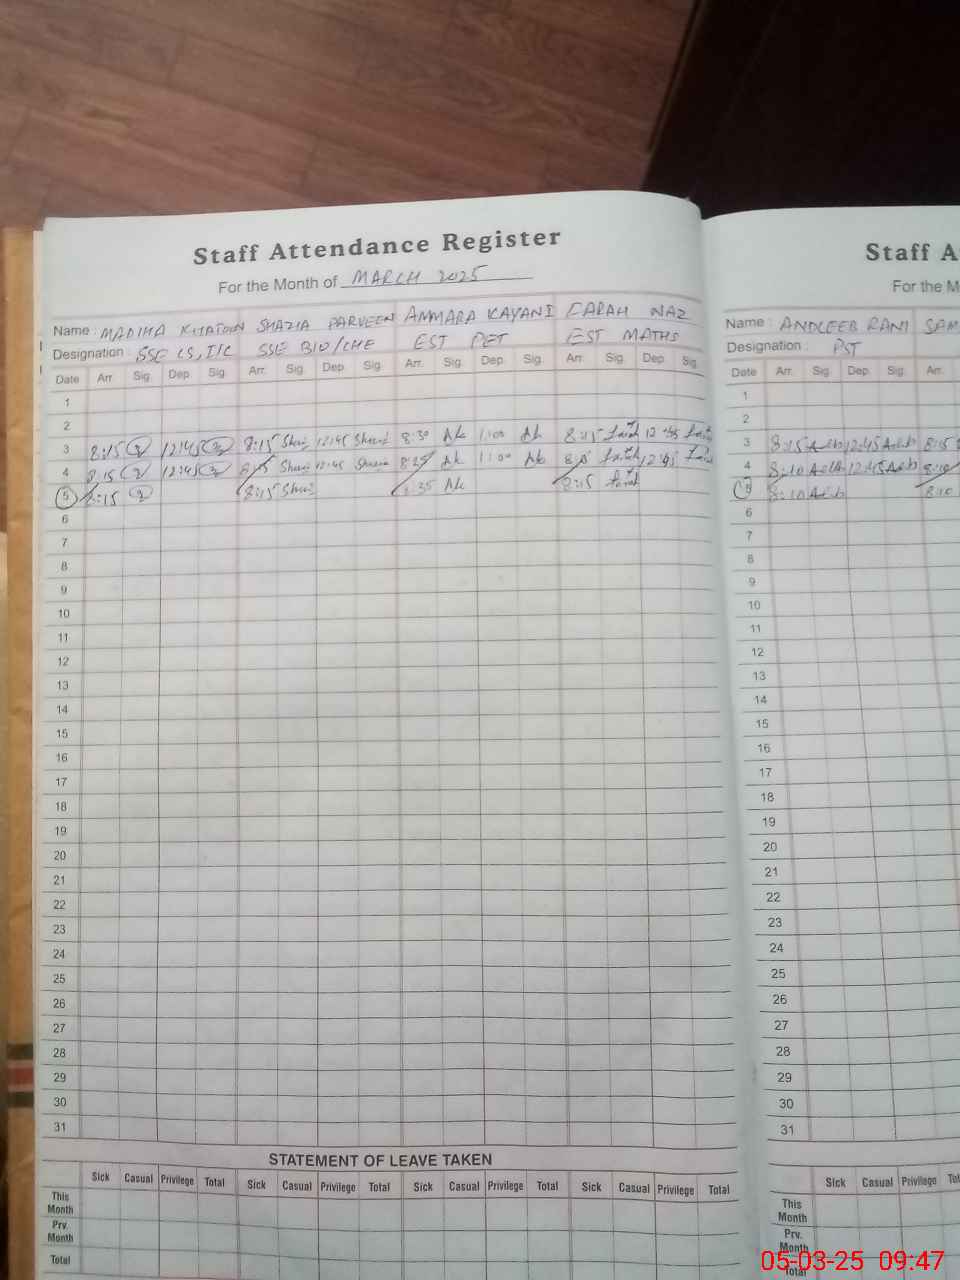 Staff Attendance Register
For the Month of MARCH 2025
Name : MADIHA KHATOON SHAZIA PARVEEN AMMARA KAYANI FARAH NAZ
Designation : SSE CS, I/C SSE BIO/CHE EST PET EST MATHS
Date Arr. Sig. Dep. Sig. Arr. Sig. Dep. Sig. Arr. Sig. Dep. Sig. Arr. Sig. Dep. Sig.
1
2
3 8:15 12:45 8:15 12:45 8:30 1:00 8:15 12:45
4 8:15 12:45 8:15 12:45 8:25 1:00 8:15 12:45
5 8:15 8:15 8:35 8:15
6
7
8
9
10
11
12
13
14
15
16
17
18
19
20
21
22
23
24
25
26
27
28
29
30
31
STATEMENT OF LEAVE TAKEN
Sick Casual Privilege Total Sick Casual Privilege Total Sick Casual Privilege Total Sick Casual Privilege Total
This Month
Prv. Month
Total
Staff A
For the M
Name : ANDLEEB RANI SAM
Designation : PST
Date Arr. Sig. Dep. Sig. Arr.
1
2
3 8:15 12:45 8:15
4 8:10 12:45 8:10
5 8:10 8:10
6
7
8
9
10
11
12
13
14
15
16
17
18
19
20
21
22
23
24
25
26
27
28
29
30
31
Sick Casual Privilege Tot
This Month
Prv. Month
Total
05-03-25 09:47